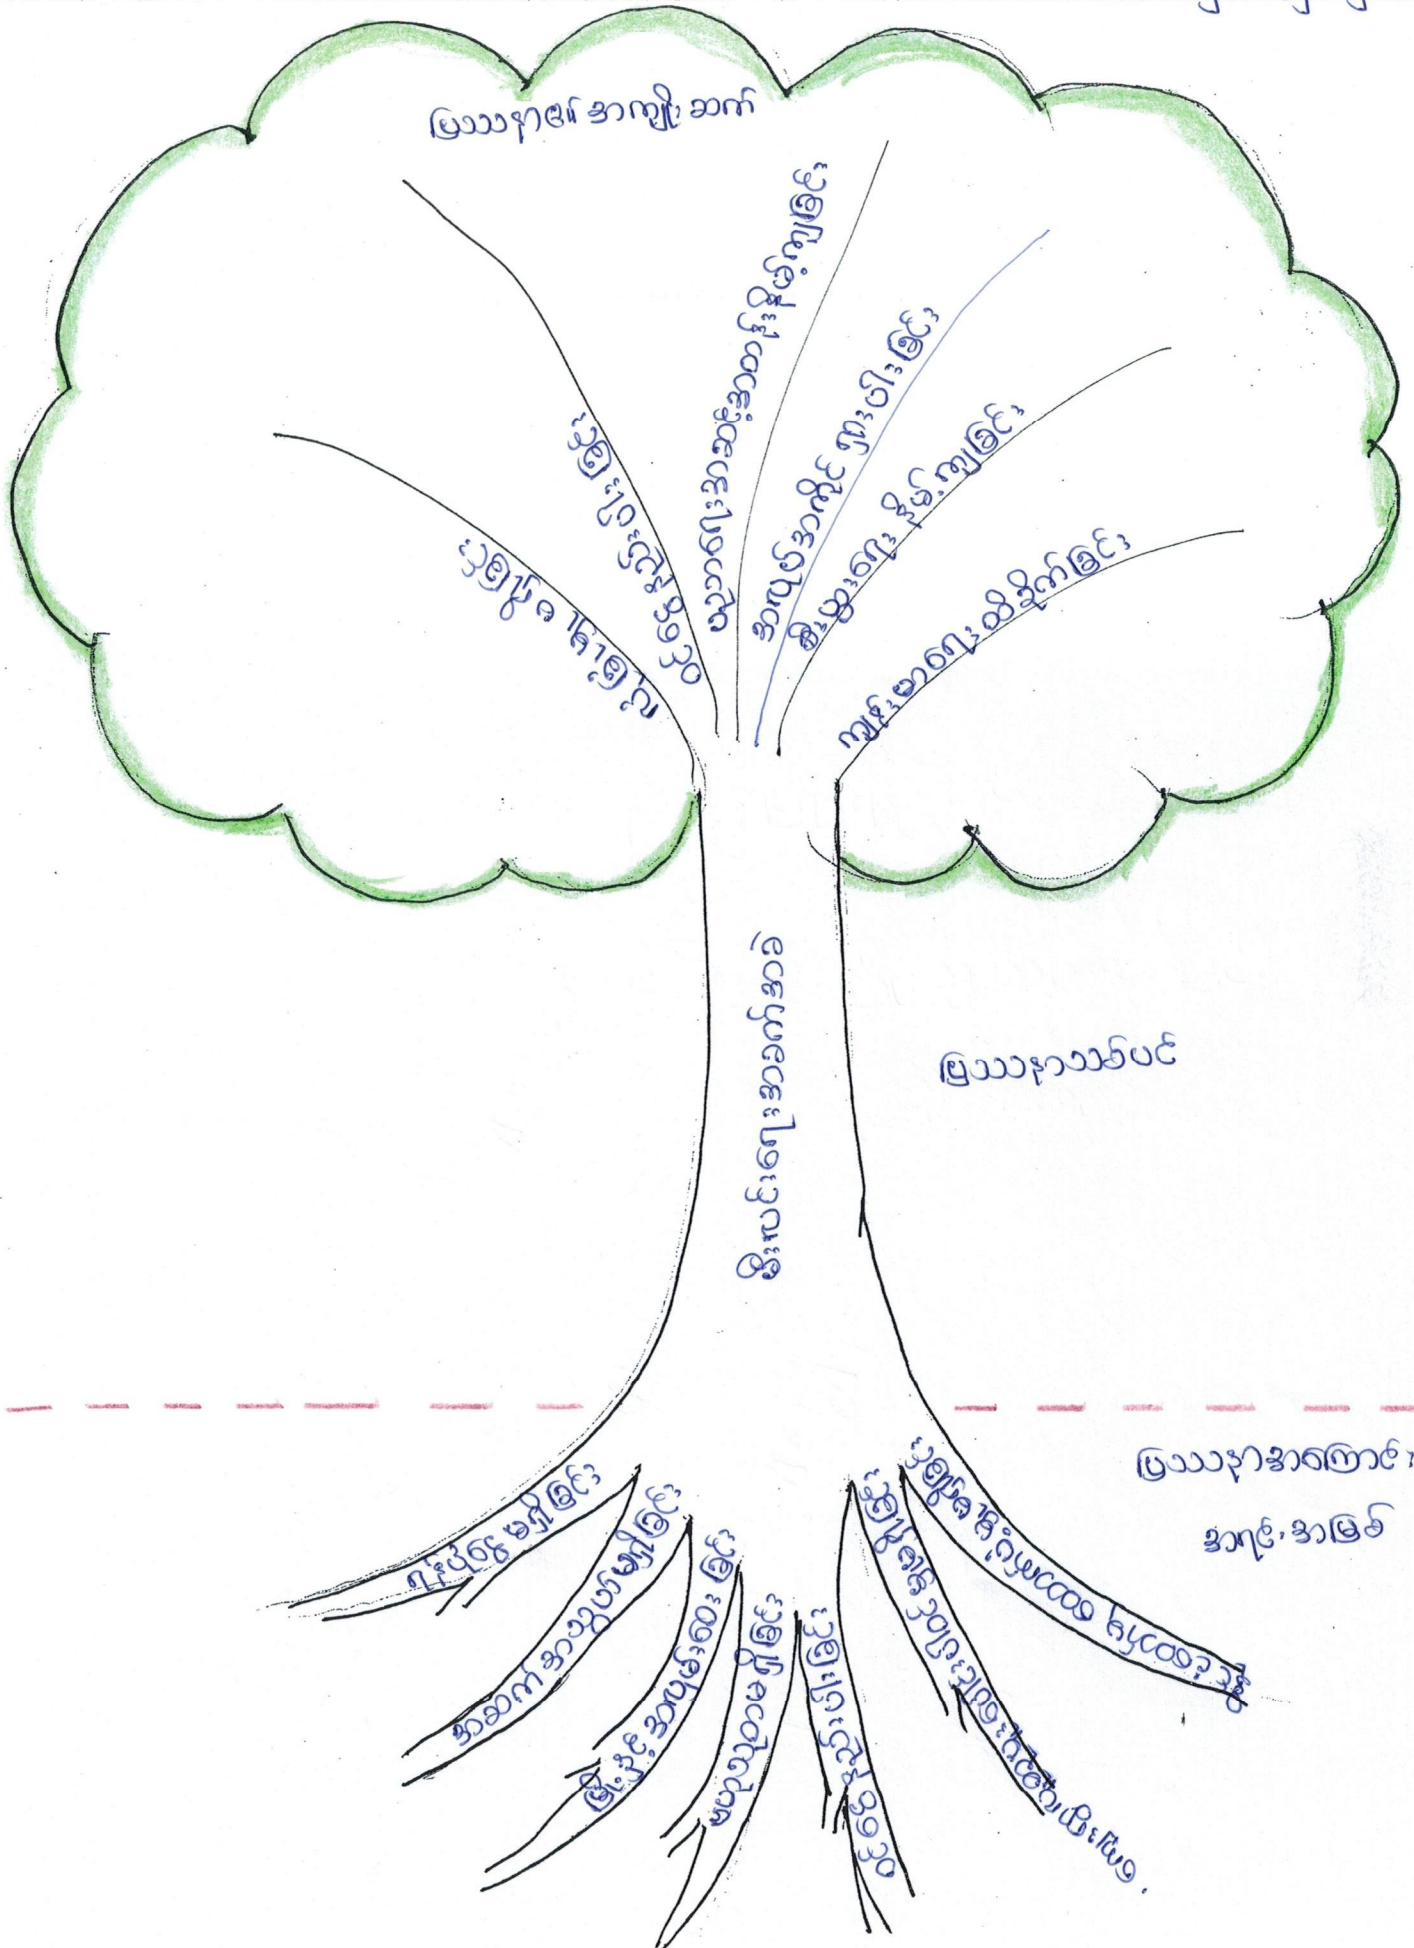 ပြဿနာ၏ အကျိုးဆက်
လုံခြုံမှု မရှိခြင်း
ဝင်ငွေနည်းပါးခြင်း
ပညာရေးအဆင့်အတန်းနိမ့်ကျခြင်း
အလုပ်အကိုင် ရှားပါးခြင်း
စီးပွားရေး နိမ့်ကျခြင်း
ကျန်းမာရေး ထိခိုက်ခြင်း
မီးလင်းရေးအခက်အခဲ
ပြဿနာသစ်ပင်
ပြဿနာအကြောင်း
အရင်းအမြစ်
ရန်ပုံငွေ မရှိခြင်း
အဆက်အသွယ်မရှိခြင်း
မြို့နှင့် အလှမ်းဝေးခြင်း
ပညာမတတ်ခြင်း
ဝင်ငွေနည်းပါးခြင်း